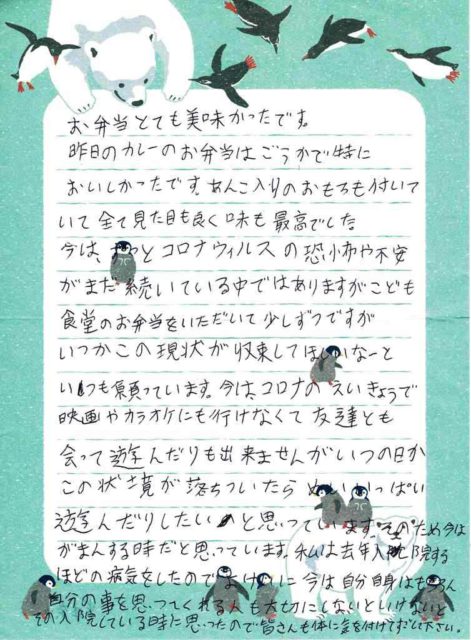 お弁当とても美味かったです。
昨日のカレーのお弁当はごうかで特に
おいしかったです。あんこ入りのおもちも付いて
いて全て見た目も良く味も最高でした。
今は、ずっとコロナウィルスの恐怖や不安
がまだ続いている中ではありますがこども
食堂のお弁当をいただいて少しずつですが
いつかこの現状が収束してほしいなーと
いつも願っています。今は、コロナのえいきょうで
映画やカラオケにも行けなくて友達とも
会って遊んだりも出来ませんがいつの日か
この状境が落ちついたらめいいっぱい
遊んだりしたいと思っています。そのため今は
がまんする時だと思っています。私は去年入院する
ほどの病気をしたのでよけいに今は自分自身はもちろん
自分の事を思ってくれる人も大切にしないといけないと
その入院している時に思ったので皆さんも体に気を付けておいて下さい。